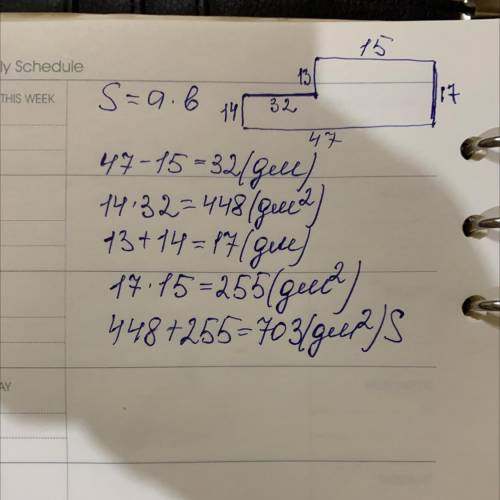 ly Schedule
THIS WEEK
15
13
17
S = a · b
14
32
47
47 - 15 = 32 (дм)
14 · 32 = 448 (дм²)
13 + 14 = 17 (дм)
17 · 15 = 255 (дм²)
448 + 255 = 703 (дм²) S
AY